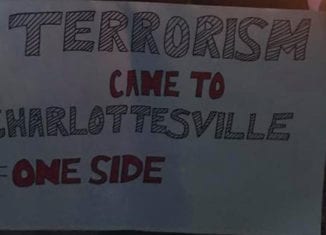 TERRORISM
CAME TO
CHARLOTTESVILLE
=ONE SIDE